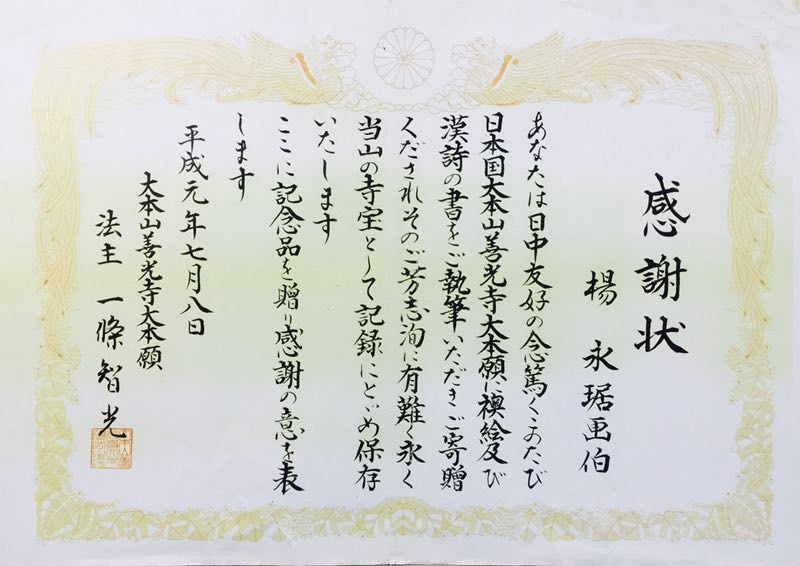 感謝状
楊永琚画伯
あなたは日中友好の念篤くこのたび
日本国大本山善光寺大本願に襖絵及び
漢詩の書をご執筆いただきご寄贈
くだされそのご芳志洵に有難く永く
当山の寺宝として記録にとどめ保存
いたします
ここに記念品を贈り感謝の意を表
します
平成元年七月八日
大本山善光寺大本願
法主 一條智光